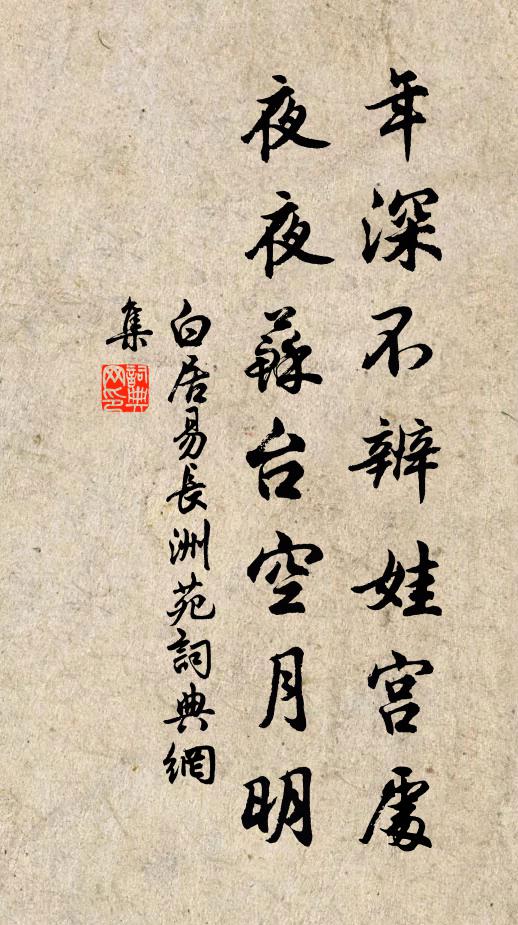 年深不辨娃宮處
夜夜蘇台空月明
白居易長洲苑詞典網
集
詞典
网印